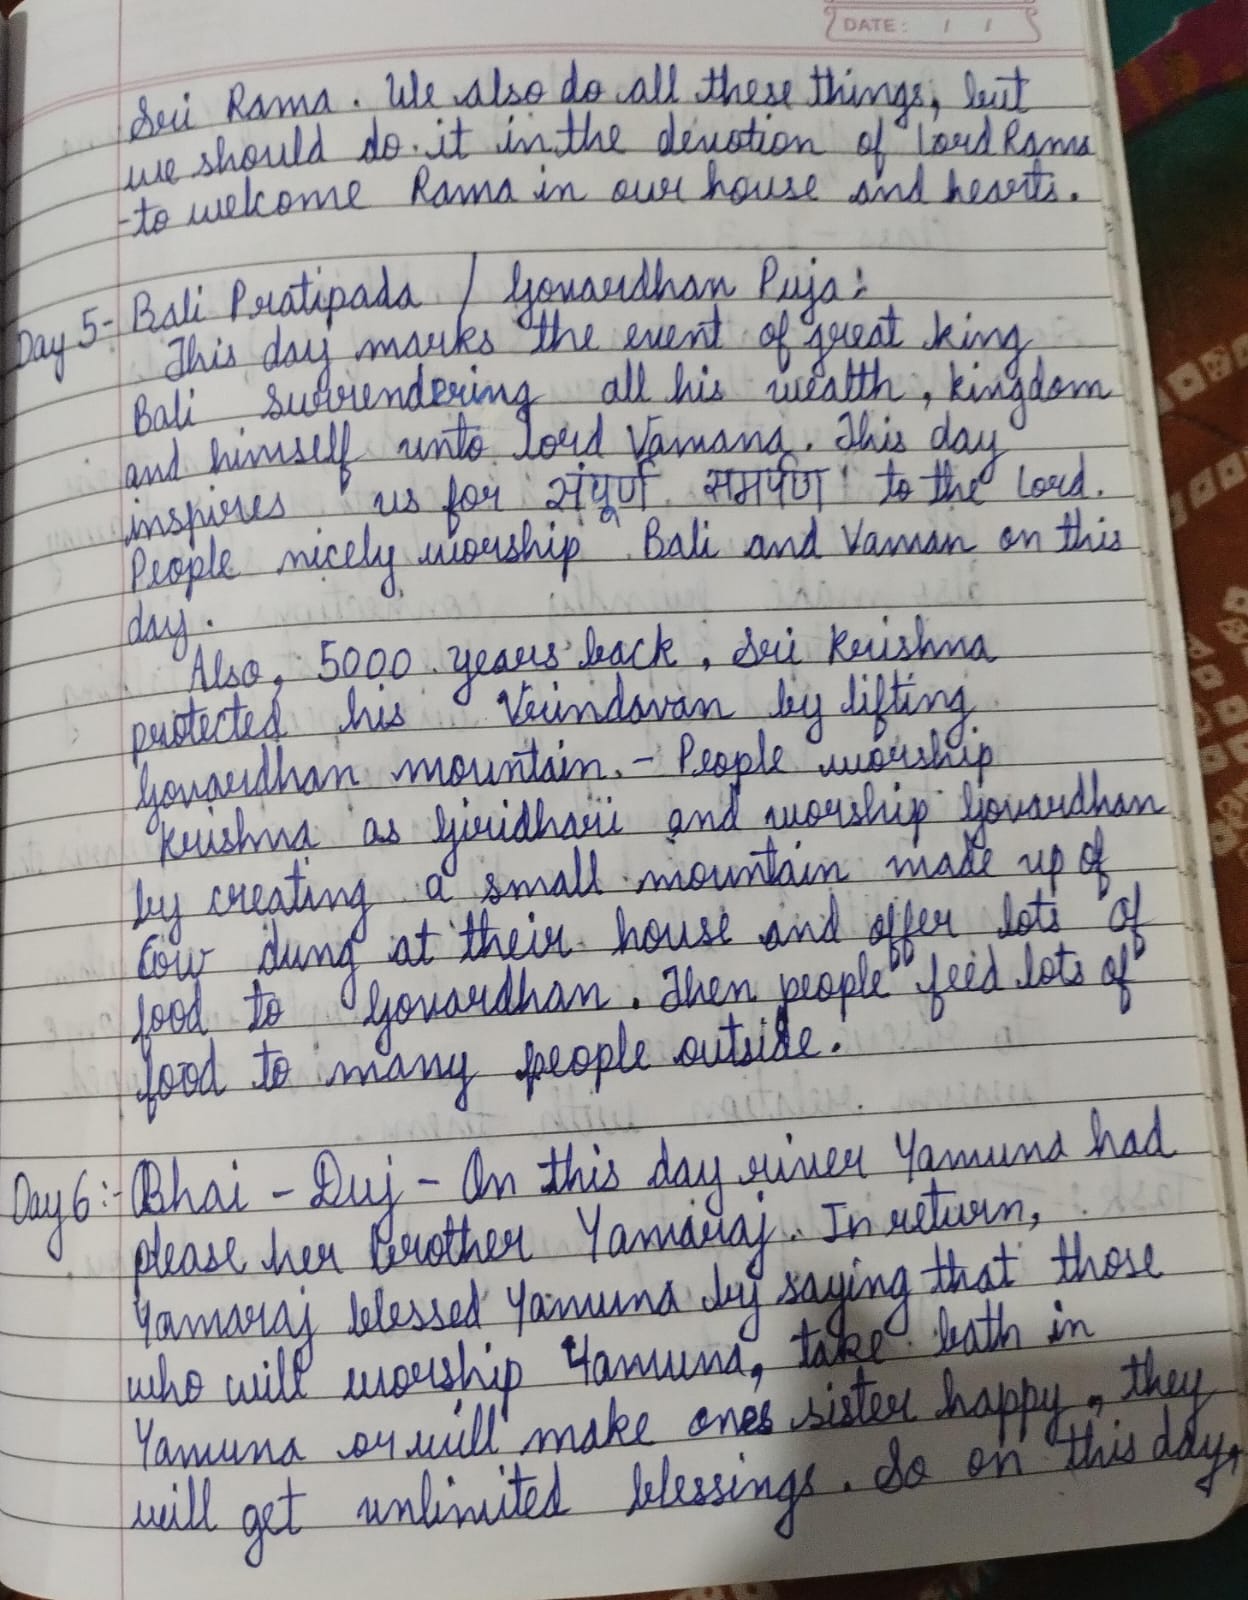 DATE: / /
Sri Rama. We also do all these things, but
we should do it in the devotion of Lord Rama
-to welcome Rama in our house and hearts.
Day 5- Bali Pratipada / Govardhan Puja:
This day marks the event of great king
Bali surrendering all his wealth, kingdom
and himself unto lord Vamana. This day
inspires us for संपूर्ण समर्पण to the Lord.
People nicely worship Bali and Vaman on this
day.
Also, 5000 years back, Sri Krishna
protected his Vrindavan by lifting
Govardhan mountain. - People worship
Krishna as Giridhari and worship Govardhan
by creating a small mountain made up of
Cow dung at their house and offer lots of
food to Govardhan. Then people feed lots of
food to many people outside.
Day 6:- Bhai - Duj - On this day river Yamuna had
please her Brother Yamaraj. In return,
Yamaraj blessed Yamuna by saying that those
who will worship Yamuna, take bath in
Yamuna or will make ones sister happy, they
will get unlimited blessings. So on this day,